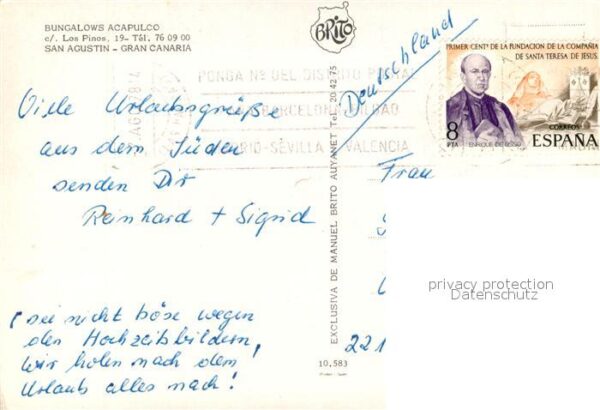 BUNGALOWS ACAPULCO
c/. Los Pinos, 19 - Tél. 76 09 00
SAN AGUSTIN - GRAN CANARIA
BRITO
Deutschland
PRIMER CENTº DE LA FUNDACION DE LA COMPAÑIA
DE SANTA TERESA DE JESUS.
8
PTA
ENRIQUE DE OSSO
CORREOS
ESPAÑA
PONGA Nº DEL DISTRITO POSTAL
BARCELONA-BILBAO
SEVILLA VALENCIA
Viele Urlaubsgrüße
aus dem Süden
senden Dir
Reinhard + Sigrid
(sei nicht böse wegen
den Hochzeitsbildern,
wir holen nach dem
Urlaub alles nach!
EXCLUSIVA DE MANUEL BRITO AUYANET Tel. 20 42 75
10.583
Frau
221
privacy protection
Datenschutz